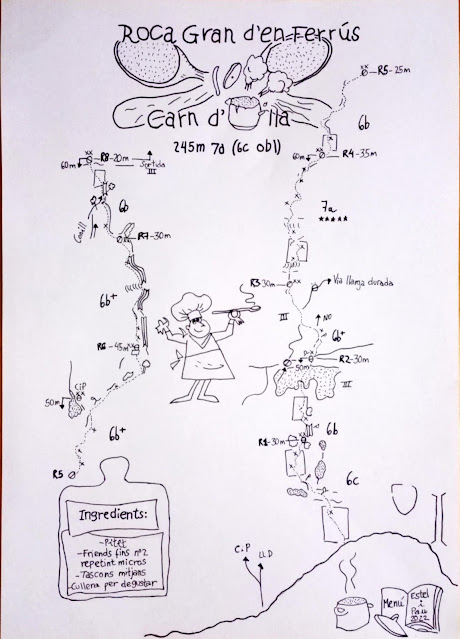 Roca Gran d'en Ferrús
Carn d'Olla
245m 7a (6c obl)
xx R5-25m
6b
60m R4-35m
7a
*****
R3-30m xx
Via llarga daurada
III
NO
6b+
R2-30m
50m
III
6b
xx
R1-30m
6c
xx
60m R8-20m
Sortida
III
6b
Canill
R7-30m
6b+
R6-45m xx
CiP
50m
6b+
R5
Ingredients:
-Pitet
-Friends fins nº2
repetint micros
-Tascons mitjans
-Cullera per degustar
CiP
LLD
Menú
Estel
i
Pau
2022